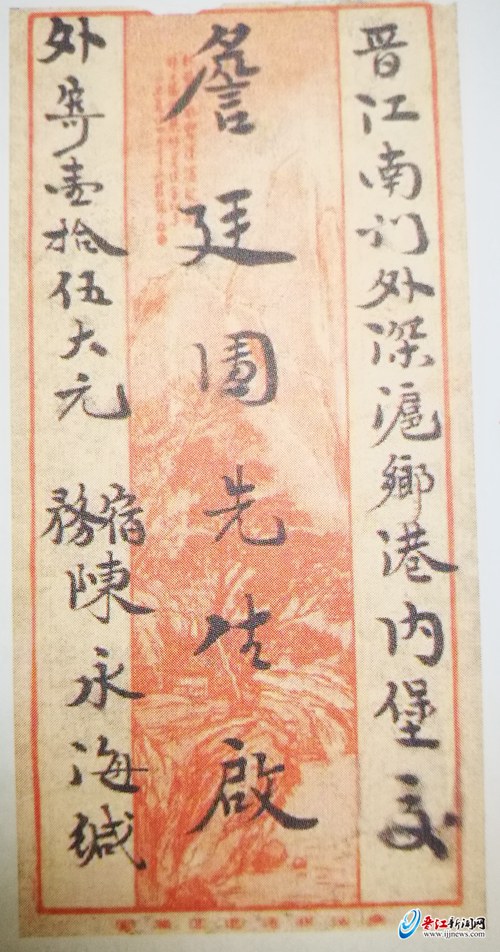 晋江南门外深滬鄉港内堡交
詹廷圍先生啟
外寄壹拾伍大元 宿務陳永海缄
晋江新闻网
www.ijjnews.com